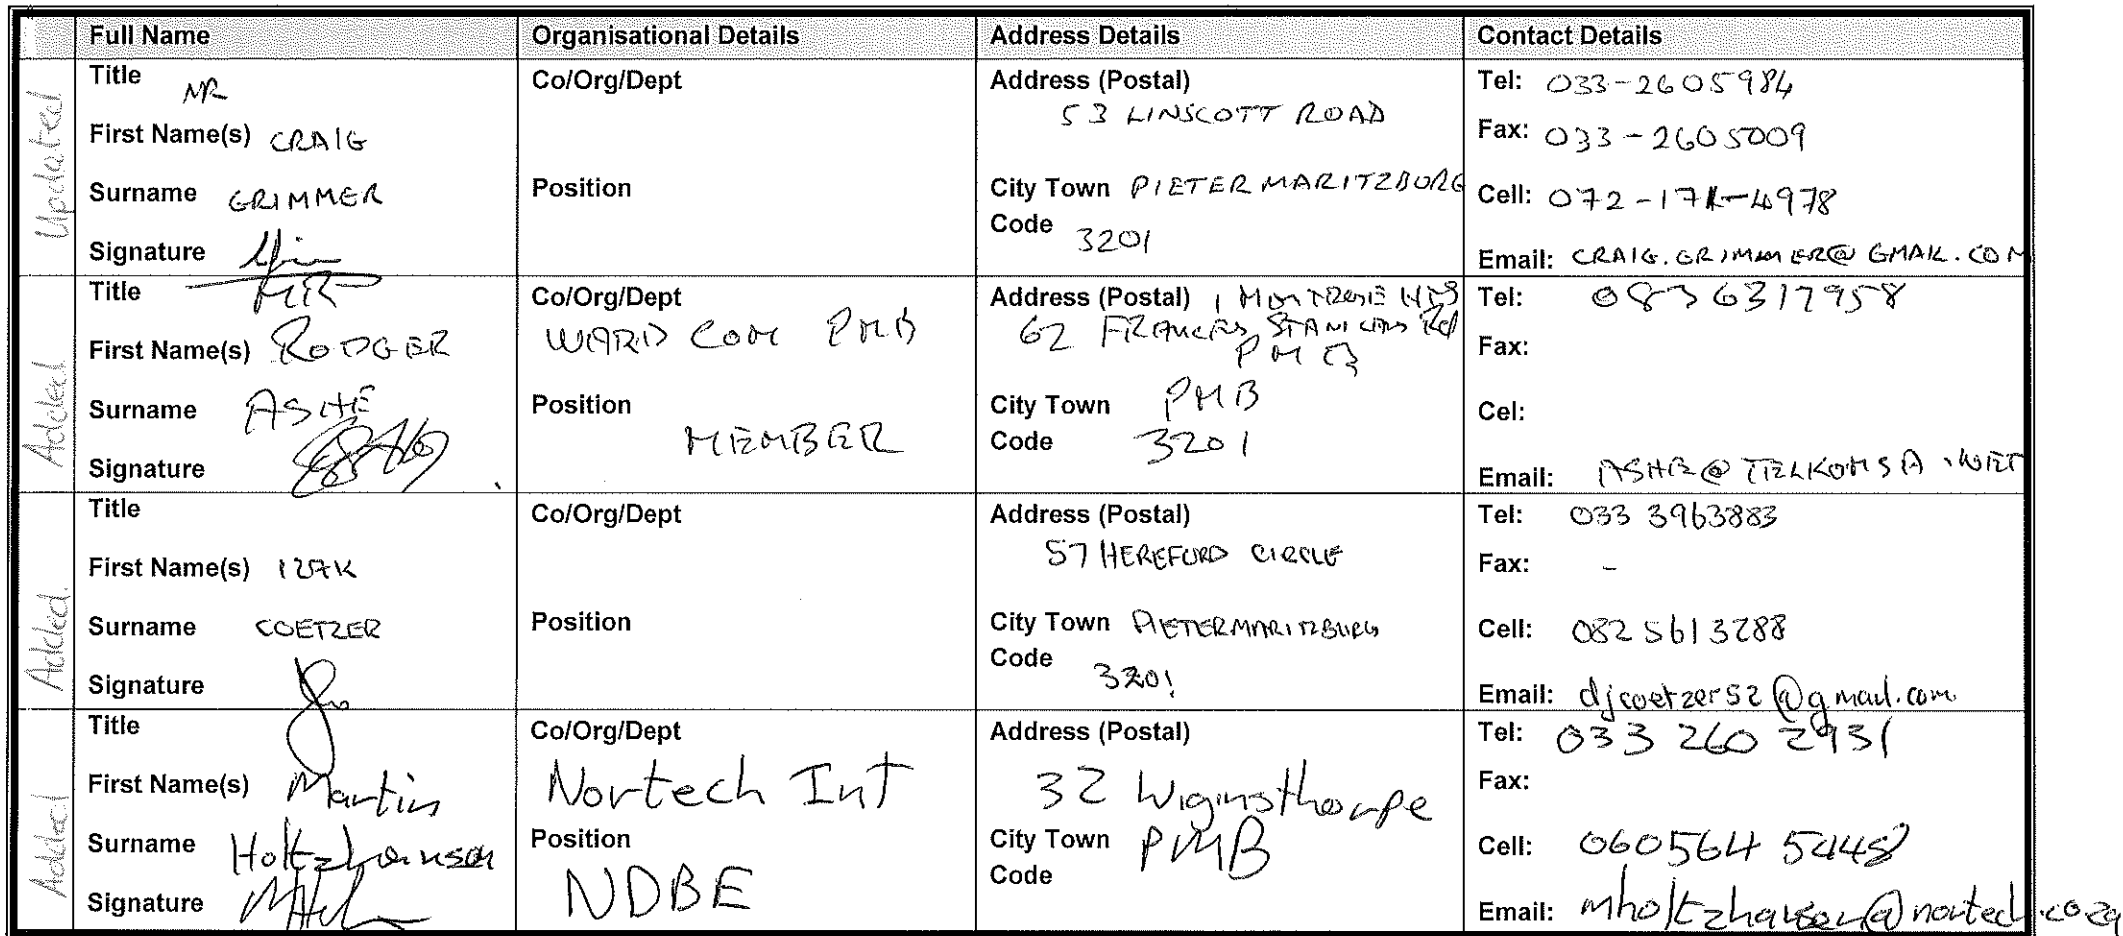 Full Name Organisational Details Address Details Contact Details
Updated
Title MR
First Name(s) CRAIG
Surname GRIMMER
Signature
Co/Org/Dept
Position
Address (Postal)
53 LINSCOTT ROAD
City Town PIETERMARITZBURG
Code 3201
Tel: 033-2605984
Fax: 033-2605009
Cell: 072-171-4978
Email: CRAIG.GRIMMER@GMAIL.COM
Added
Title MR
First Name(s) RODGER
Surname ASHE
Signature
Co/Org/Dept
WARD COM PMB
Position
MEMBER
Address (Postal) 1 MONTROSE
62 FRANCIS Rd
PMB
City Town PMB
Code 3201
Tel: 0836317958
Fax:
Cel:
Email: ASHE@TELKOMSA.NET
Added.
Title
First Name(s)
Surname COETZER
Signature
Co/Org/Dept
Position
Address (Postal)
57 HEREFORD CIRCLE
City Town PIETERMARITZBURG
Code 3201
Tel: 033 3963883
Fax: -
Cell: 082 5613288
Email: djcoetzer52@gmail.com
Added
Title
First Name(s) Martin
Surname Holtzhausen
Signature
Co/Org/Dept
Nortech Int
Position
NDBE
Address (Postal)
32 Wiginsthorpe
City Town PMB
Code
Tel: 033 260 2931
Fax:
Cell: 060564 5448
Email: mholtzhausen@nortech.co.za